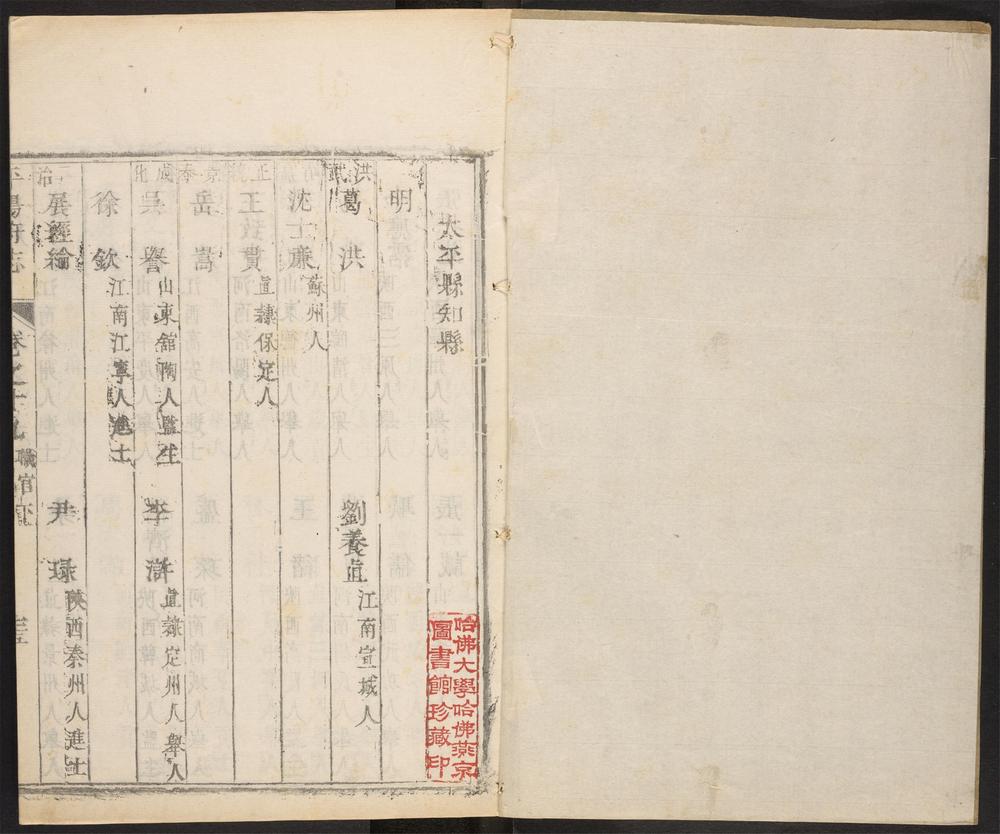 太平縣知縣
明
洪武
葛洪
劉養直 江南宣城人
沈士廉 蘇州人
正統
王致貴 直隸保定人
景泰
岳嵩
成化
吳譽 山東舘陶人監生
李滸 直隸定州人舉人
徐欽 江南江寧人進士
治
展經綸
尹 陝西秦州人進士
平陽府志
卷之十九
職官
哈佛大學哈佛燕京
圖書館珍藏印